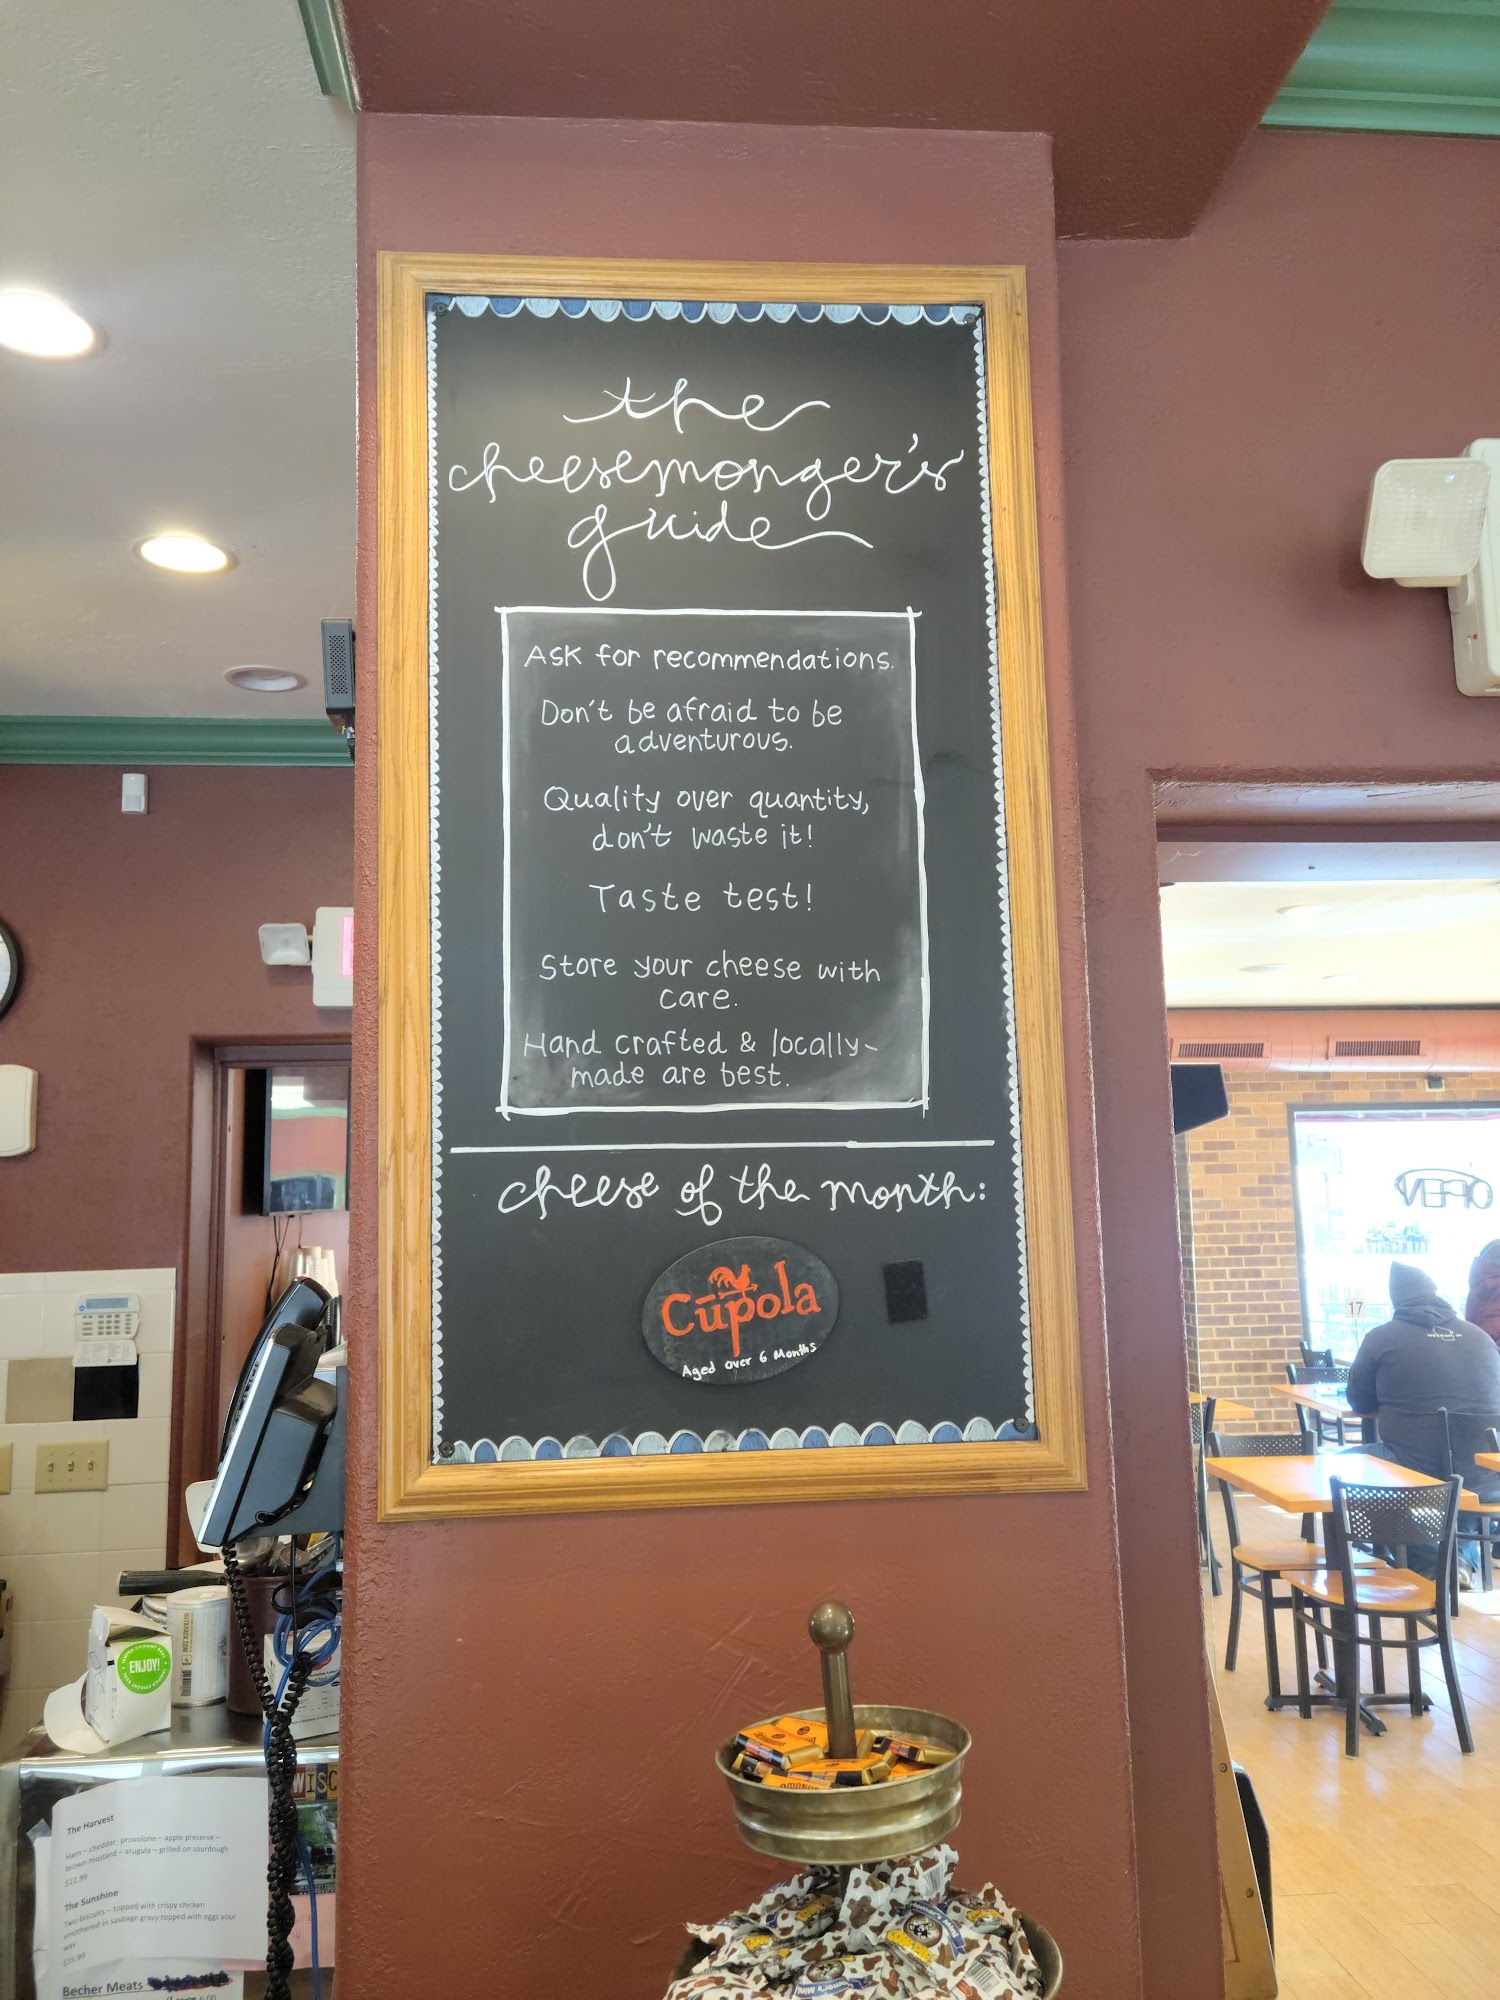 the
cheesemonger's
guide
Ask for recommendations.
Don't be afraid to be
adventurous.
Quality over quantity,
don't waste it!
Taste test!
Store your cheese with
care.
Hand crafted & locally-
made are best.
cheese of the month:
Cūpola
Aged over 6 Months
OPEN
17
ENJOY!
WISC
The Harvest
Ham – cheddar- provolone – apple preserve –
brown mustard – arugula – grilled on sourdough
$12.99
The Sunshine
Two biscuits – topped with crispy chicken
smothered in sausage gravy topped with eggs your
way
$15.99
Becher Meats